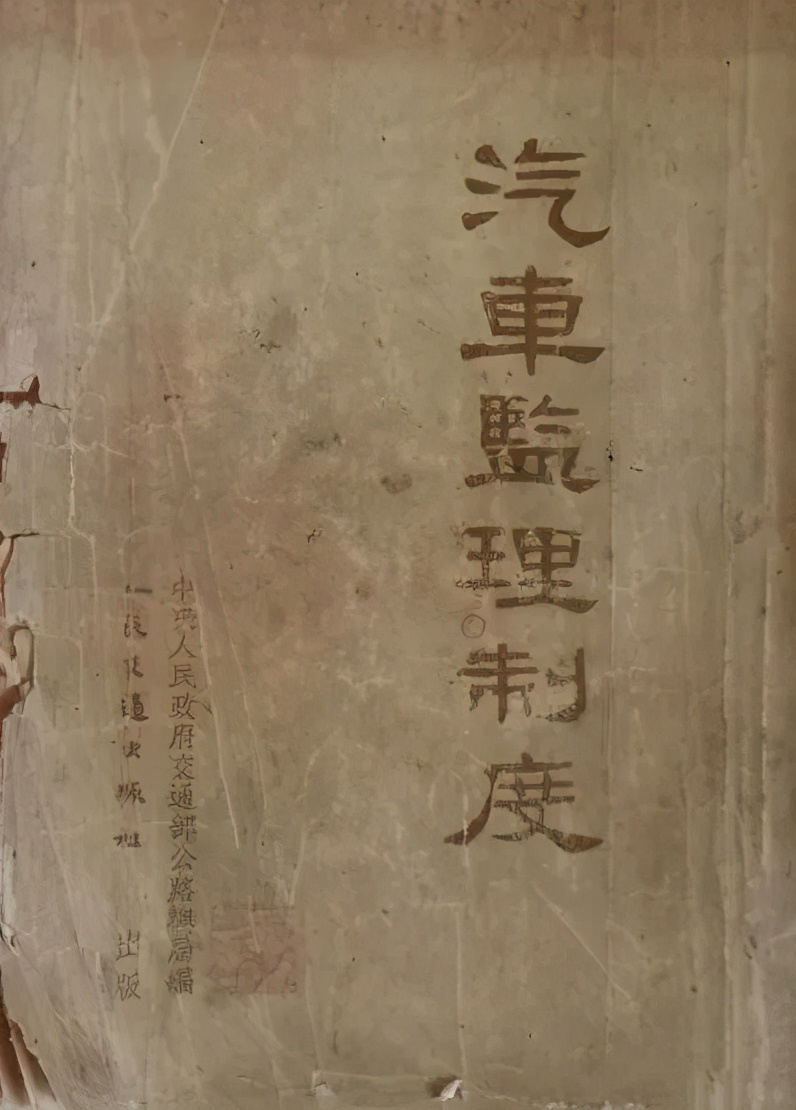 汽車監理制度
中央人民政府交通部公路總局編
人民交通出版社 出版